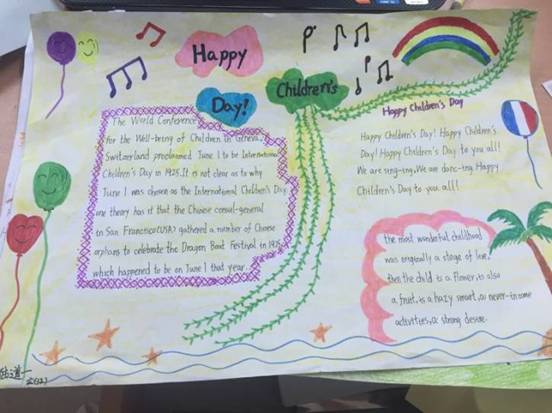 Happy
Children's
Day!
The World Conference
for the Well-being of Children in Geneva,
Switzerland proclaimed June 1 to be International
Children's Day in 1925. It is not clear as to why
June 1 was chosen as the International Children's Day
one theory has it that the Chinese consul-general
in San Francisco(USA) gathered a number of Chinese
orphans to celebrate the Dragon Boat Festival in 1925
which happened to be on June 1 that year.
Happy Children's Day
Happy Children's Day! Happy Children's
Day! Happy Children's Day to you all!
We are sing-ing, We are danc-ing Happy
Children's Day to you all!
the most wonderful childhood
was originally a stage of
then the child is a flower, is also
a fruit, is a hazy smart, a never-in
activities, a strong desire.